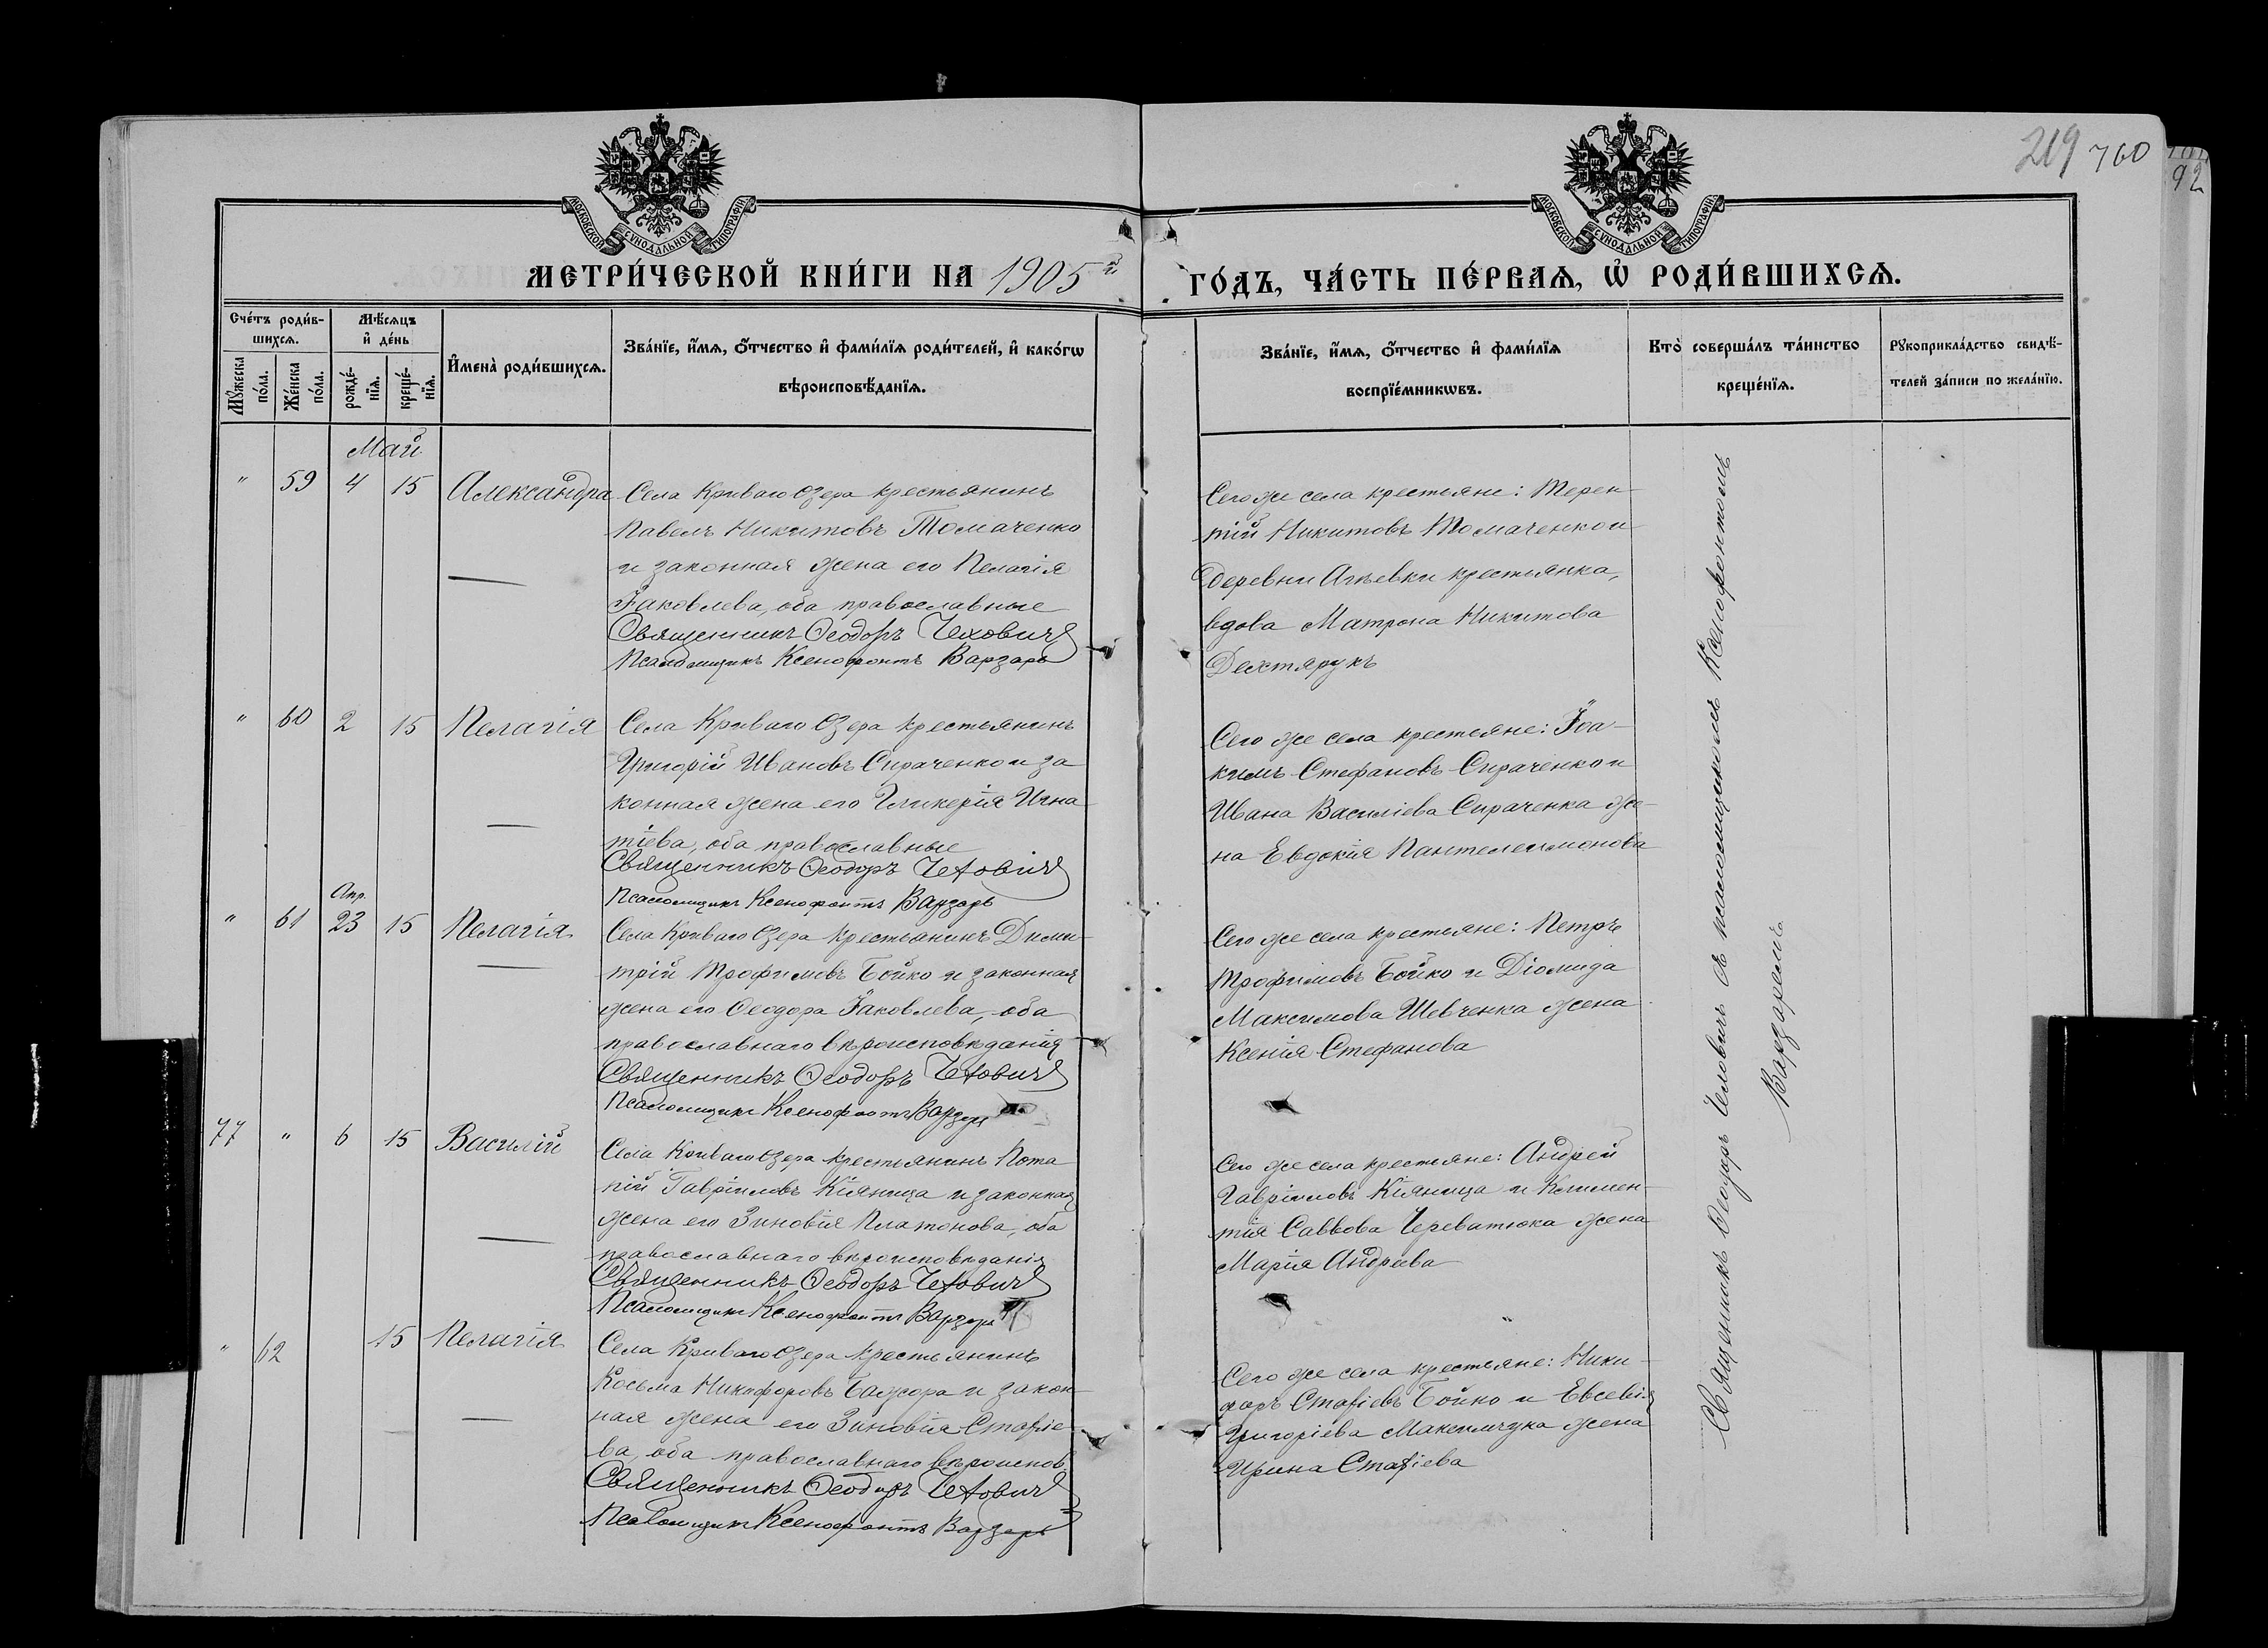 219 760
92
МОСКОВСКОЙ СѴНОДАЛЬНОЙ ТИПОГРАФІИ
МОСКОВСКОЙ СѴНОДАЛЬНОЙ ТИПОГРАФІИ
МЕТРИ́ЧЕСКОЙ КНИ́ГИ НА 1905 й ГО́ДЪ, ЧА́СТЬ ПЕ́РВАѦ, Ѡ҆ РОДИ́ВШИХСѦ.
Сче́тъ роди́вшихсѧ.
Мꙋ́жеска по́ла.
Же́нска по́ла.
Мѣ́сѧцъ и҆ де́нь
рожде́нїѧ.
креще́нїѧ.
И҆мена̀ роди́вшихсѧ.
Зва́нїе, и҆́мѧ, ѻ҆́тчество и҆ фами́лїѧ роди́телей, и҆ како́гѡ
вѣроисповѣ́данїѧ.
Зва́нїе, и҆́мѧ, ѻ҆́тчество и҆ фами́лїѧ
воспрїе́мникѡвъ.
Кто̀ соверша́лъ та́инство
креще́нїѧ.
Рꙋкоприкла́дство свидѣ́-
телей за́писи по жела́нїю.
Май
" 59 4 15 Александра
Села Криваго Озера крестьянинъ
Павелъ Никитовъ Томаченко
и законная жена его Пелагія
Іаковлева, оба православные
Священникъ Ѳеодоръ Чеховичъ
Псаломщикъ Ксенофонтъ Варзарь
Сего же села крестьяне: Терен-
тій Никитовъ Томаченко и
деревни Агѣевки крестьянка,
вдова Матрона Никитова
Дехтярукъ
" 60 2 15 Пелагія
Села Криваго Озера крестьянинъ
Григорій Ивановъ Сираченко и за
конная жена его Гликерія Игна-
тіева, оба православные
Священникъ Ѳеодоръ Чеховичъ
Псаломщикъ Ксенофонтъ Варзарь
Сего же села крестьяне: Іоа-
кимъ Стефановъ Сираченко и
Ивана Василіева Сираченка же-
на Евдокія Пантелеимонова
Апр.
" 61 23 15 Пелагія
Села Криваго Озера крестьянинъ Дими-
трій Трофимовъ Бойко и законная
жена его Ѳеодора Іаковлева, оба
православнаго вѣроисповѣданія
Священникъ Ѳеодоръ Чеховичъ
Псаломщикъ Ксенофонтъ Варзарь
Сего же села крестьяне: Петръ
Трофимовъ Бойко и Діомида
Максимова Шевченка жена
Ксенія Стефанова
77 " 6 15 Василій
Села Криваго Озера крестьянинъ Пота
пій Гавріиловъ Кіяница и законная
жена его Зиновія Платонова, оба
православнаго вѣроисповѣданія
Священникъ Ѳеодоръ Чеховичъ
Псаломщикъ Ксенофонтъ Варзарь
Сего же села крестьяне: Андрей
Гавріиловъ Кіяница и Климен-
тія Саввова Череватюка жена
Марія Андреева
" 62 15 Пелагія
Села Криваго Озера крестьянинъ
Косьма Никифоровъ Бажора и закон-
ная жена его Зиновія Стафіе-
ва, оба православнаго вѣроиспов.
Священникъ Ѳеодоръ Чеховичъ
Псаломщикъ Ксенофонтъ Варзарь
Сего же села крестьяне: Ники-
форъ Стафіевъ Бойко и Евсевія
Григоріева Максимчука жена
Ирина Стафіева
Священникъ Ѳеодоръ Чеховичъ съ псаломщикомъ Ксенофонтомъ
Варзаремъ